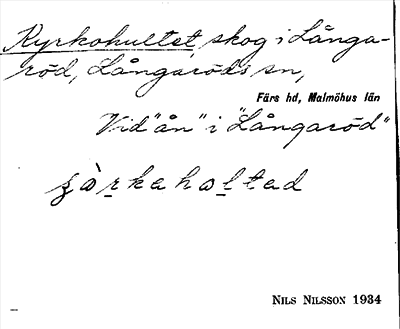 Kyrkohultet, skog i Långa-
röd, Långaröds sn,
Färs hd, Malmöhus län
Vid "ån" i "Långaröd"
NILS NILSSON 1934